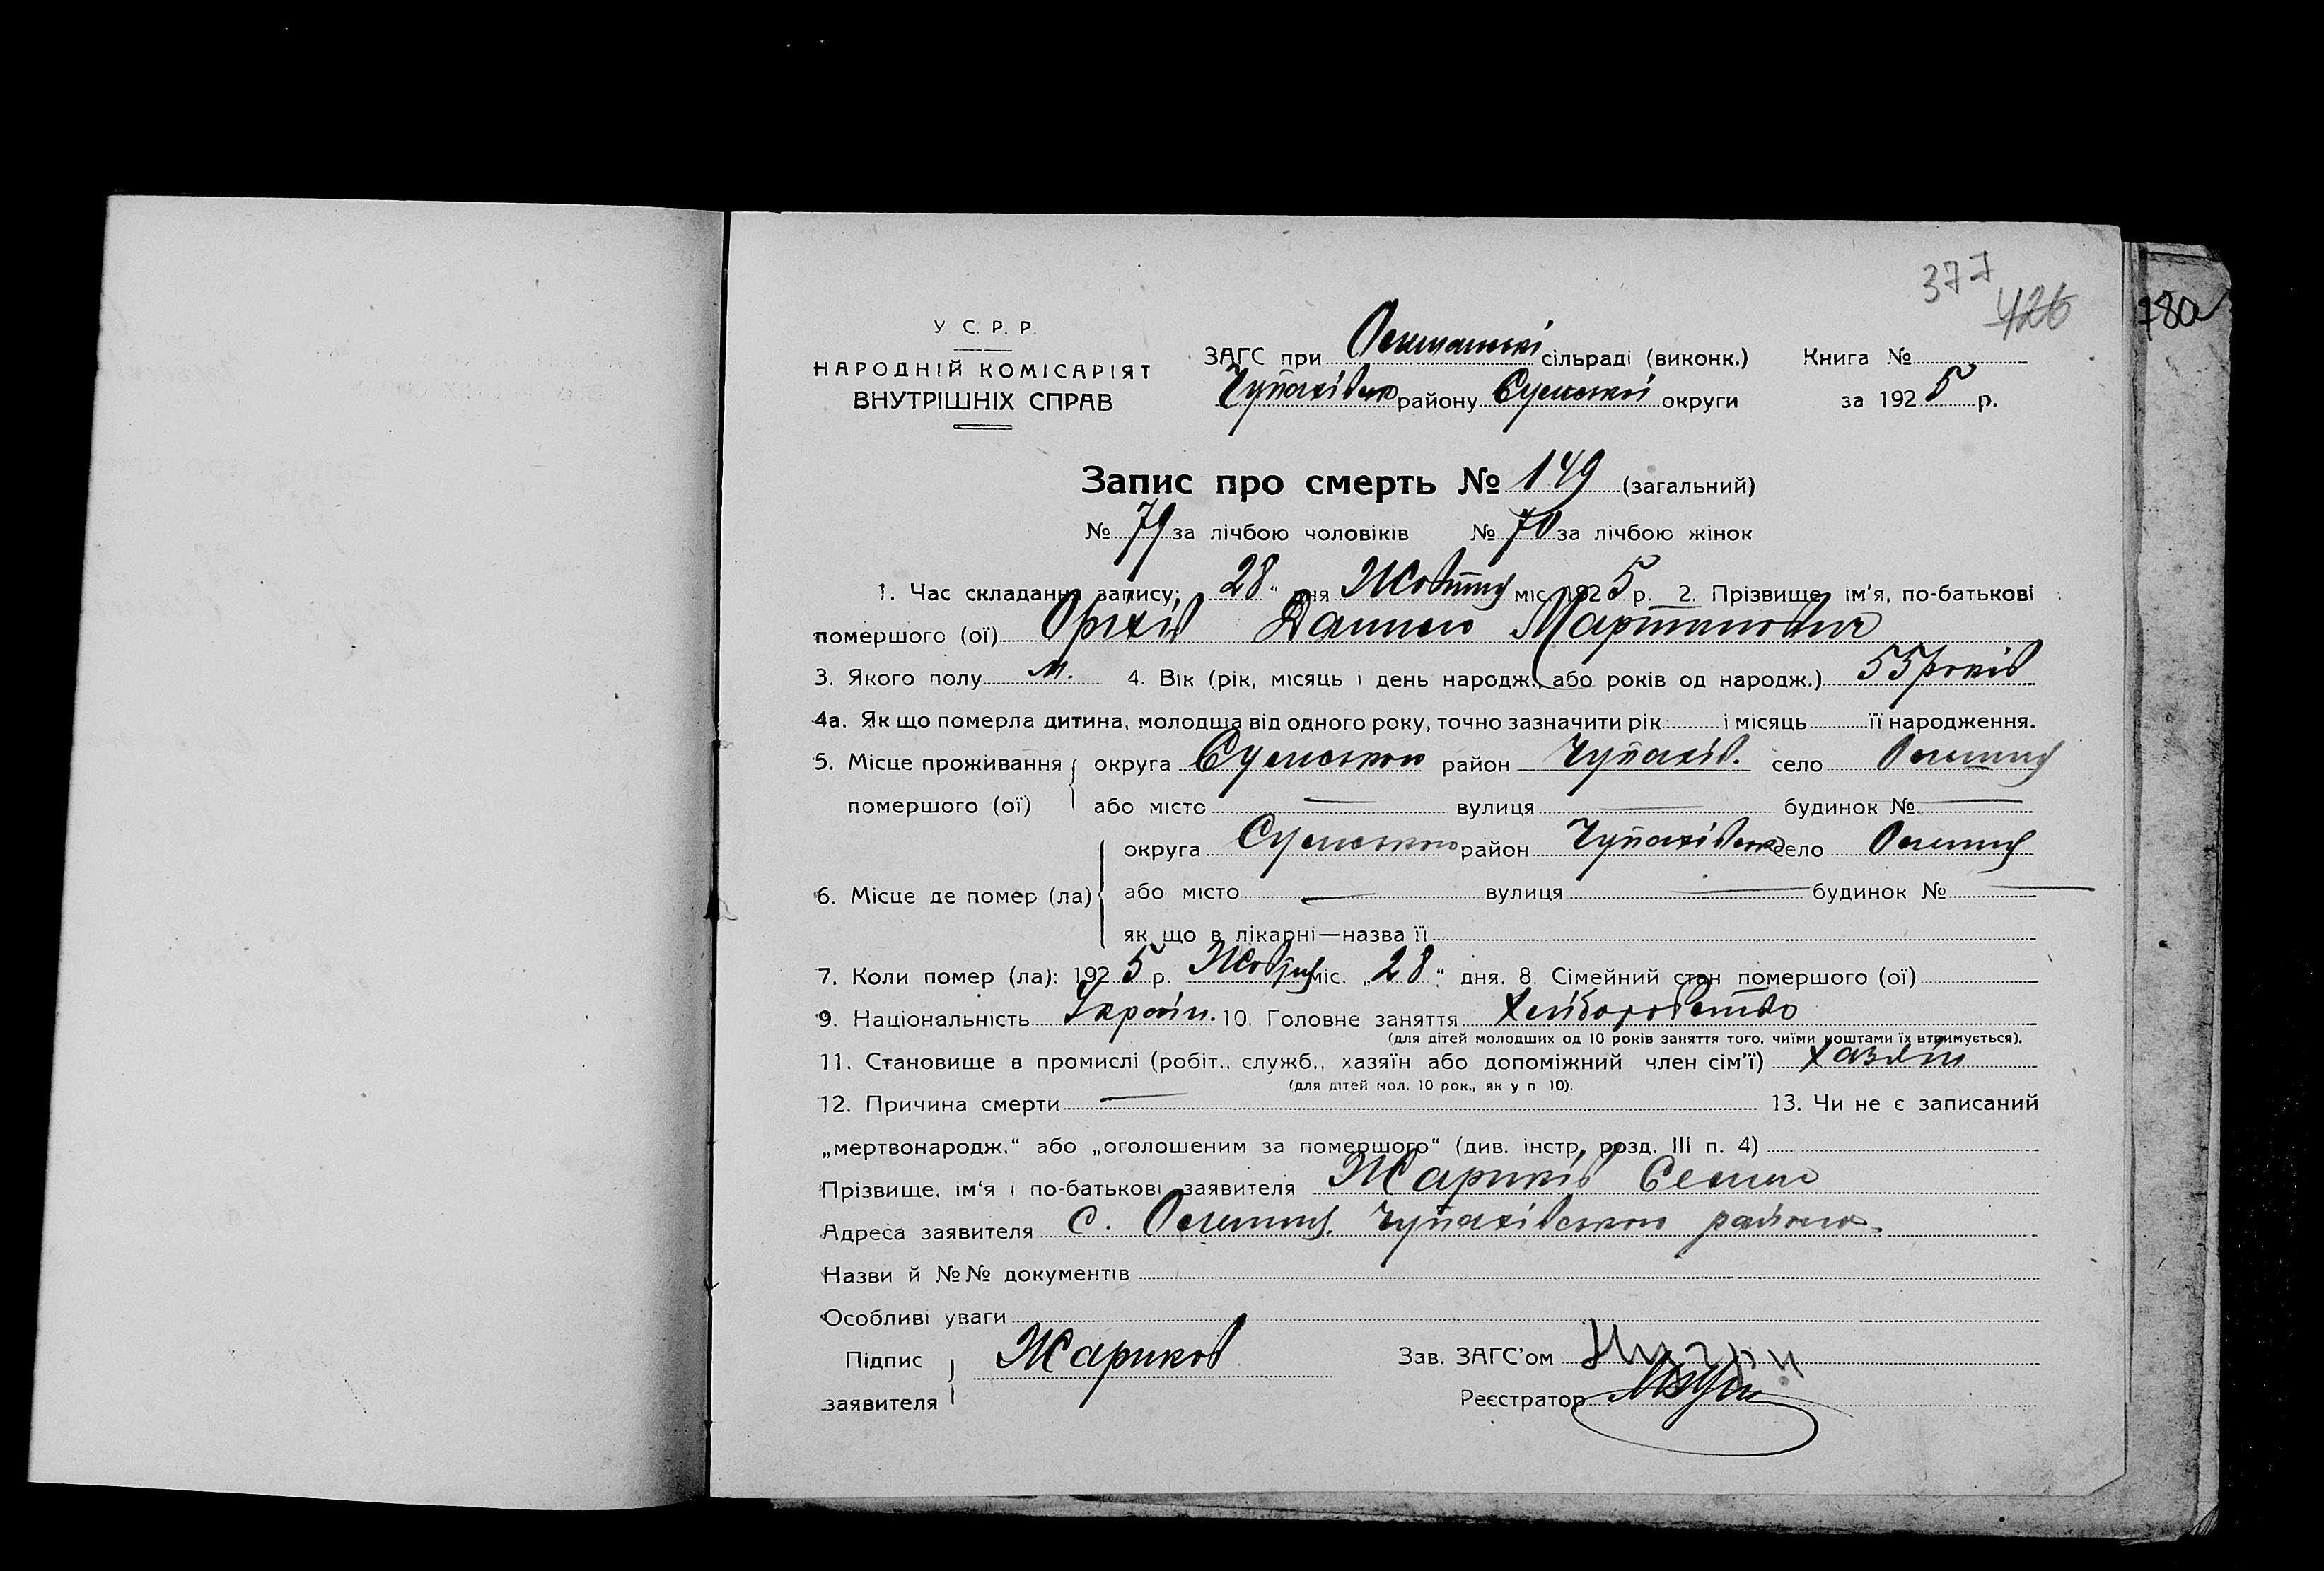 377
426
78а
У С. Р. Р.
НАРОДНІЙ КОМІСАРІЯТ
ВНУТРІШНІХ СПРАВ
ЗАГС при сільраді (виконк.) Книга №
району Сумської округи за 1925 р.
Запис про смерть № 149 (загальний)
№ 79 за лічбою чоловіків № 70 за лічбою жінок
1. Час складання запису: 28 " дня Жовтня міс. 1925 р. 2. Прізвище, ім'я, по-батькові
помершого (ої) Оріхів Данило Мартинович
3. Якого полу м. 4. Вік (рік, місяць і день народж., або років од народж.) 55 років
4а. Як що померла дитина, молодша від одного року, точно зазначити рік і місяць її народження.
5. Місце проживання округа Сумською район Чупахів. село
помершого (ої) або місто — вулиця — будинок № —
6. Місце де помер (ла) округа Сумською район Чупахівськ село
або місто — вулиця — будинок № —
як що в лікарні—назва її
7. Коли помер (ла): 1925 р. Жовтня міс. „28" дня. 8. Сімейний стан помершого (ої)
9. Національність Україн. 10. Головне заняття Хліборобство
(для дітей молодших од 10 років заняття того, чиїми коштами їх втримується).
11. Становище в промислі (робіт., служб., хазяїн або допоміжний член сім'ї) хазяїн
(для дітей мол. 10 рок., як у п 10).
12. Причина смерти — 13. Чи не є записаний
„мертвонародж." або „оголошеним за помершого" (див. інстр. розд. III п. 4)
Прізвище, ім'я і по-батькові заявителя Жариків Семен
Адреса заявителя с. Чупахівського району.
Назви й №№ документів
Особливі уваги
Підпис заявителя Жариков
Зав. ЗАГС'ом
Реєстратор